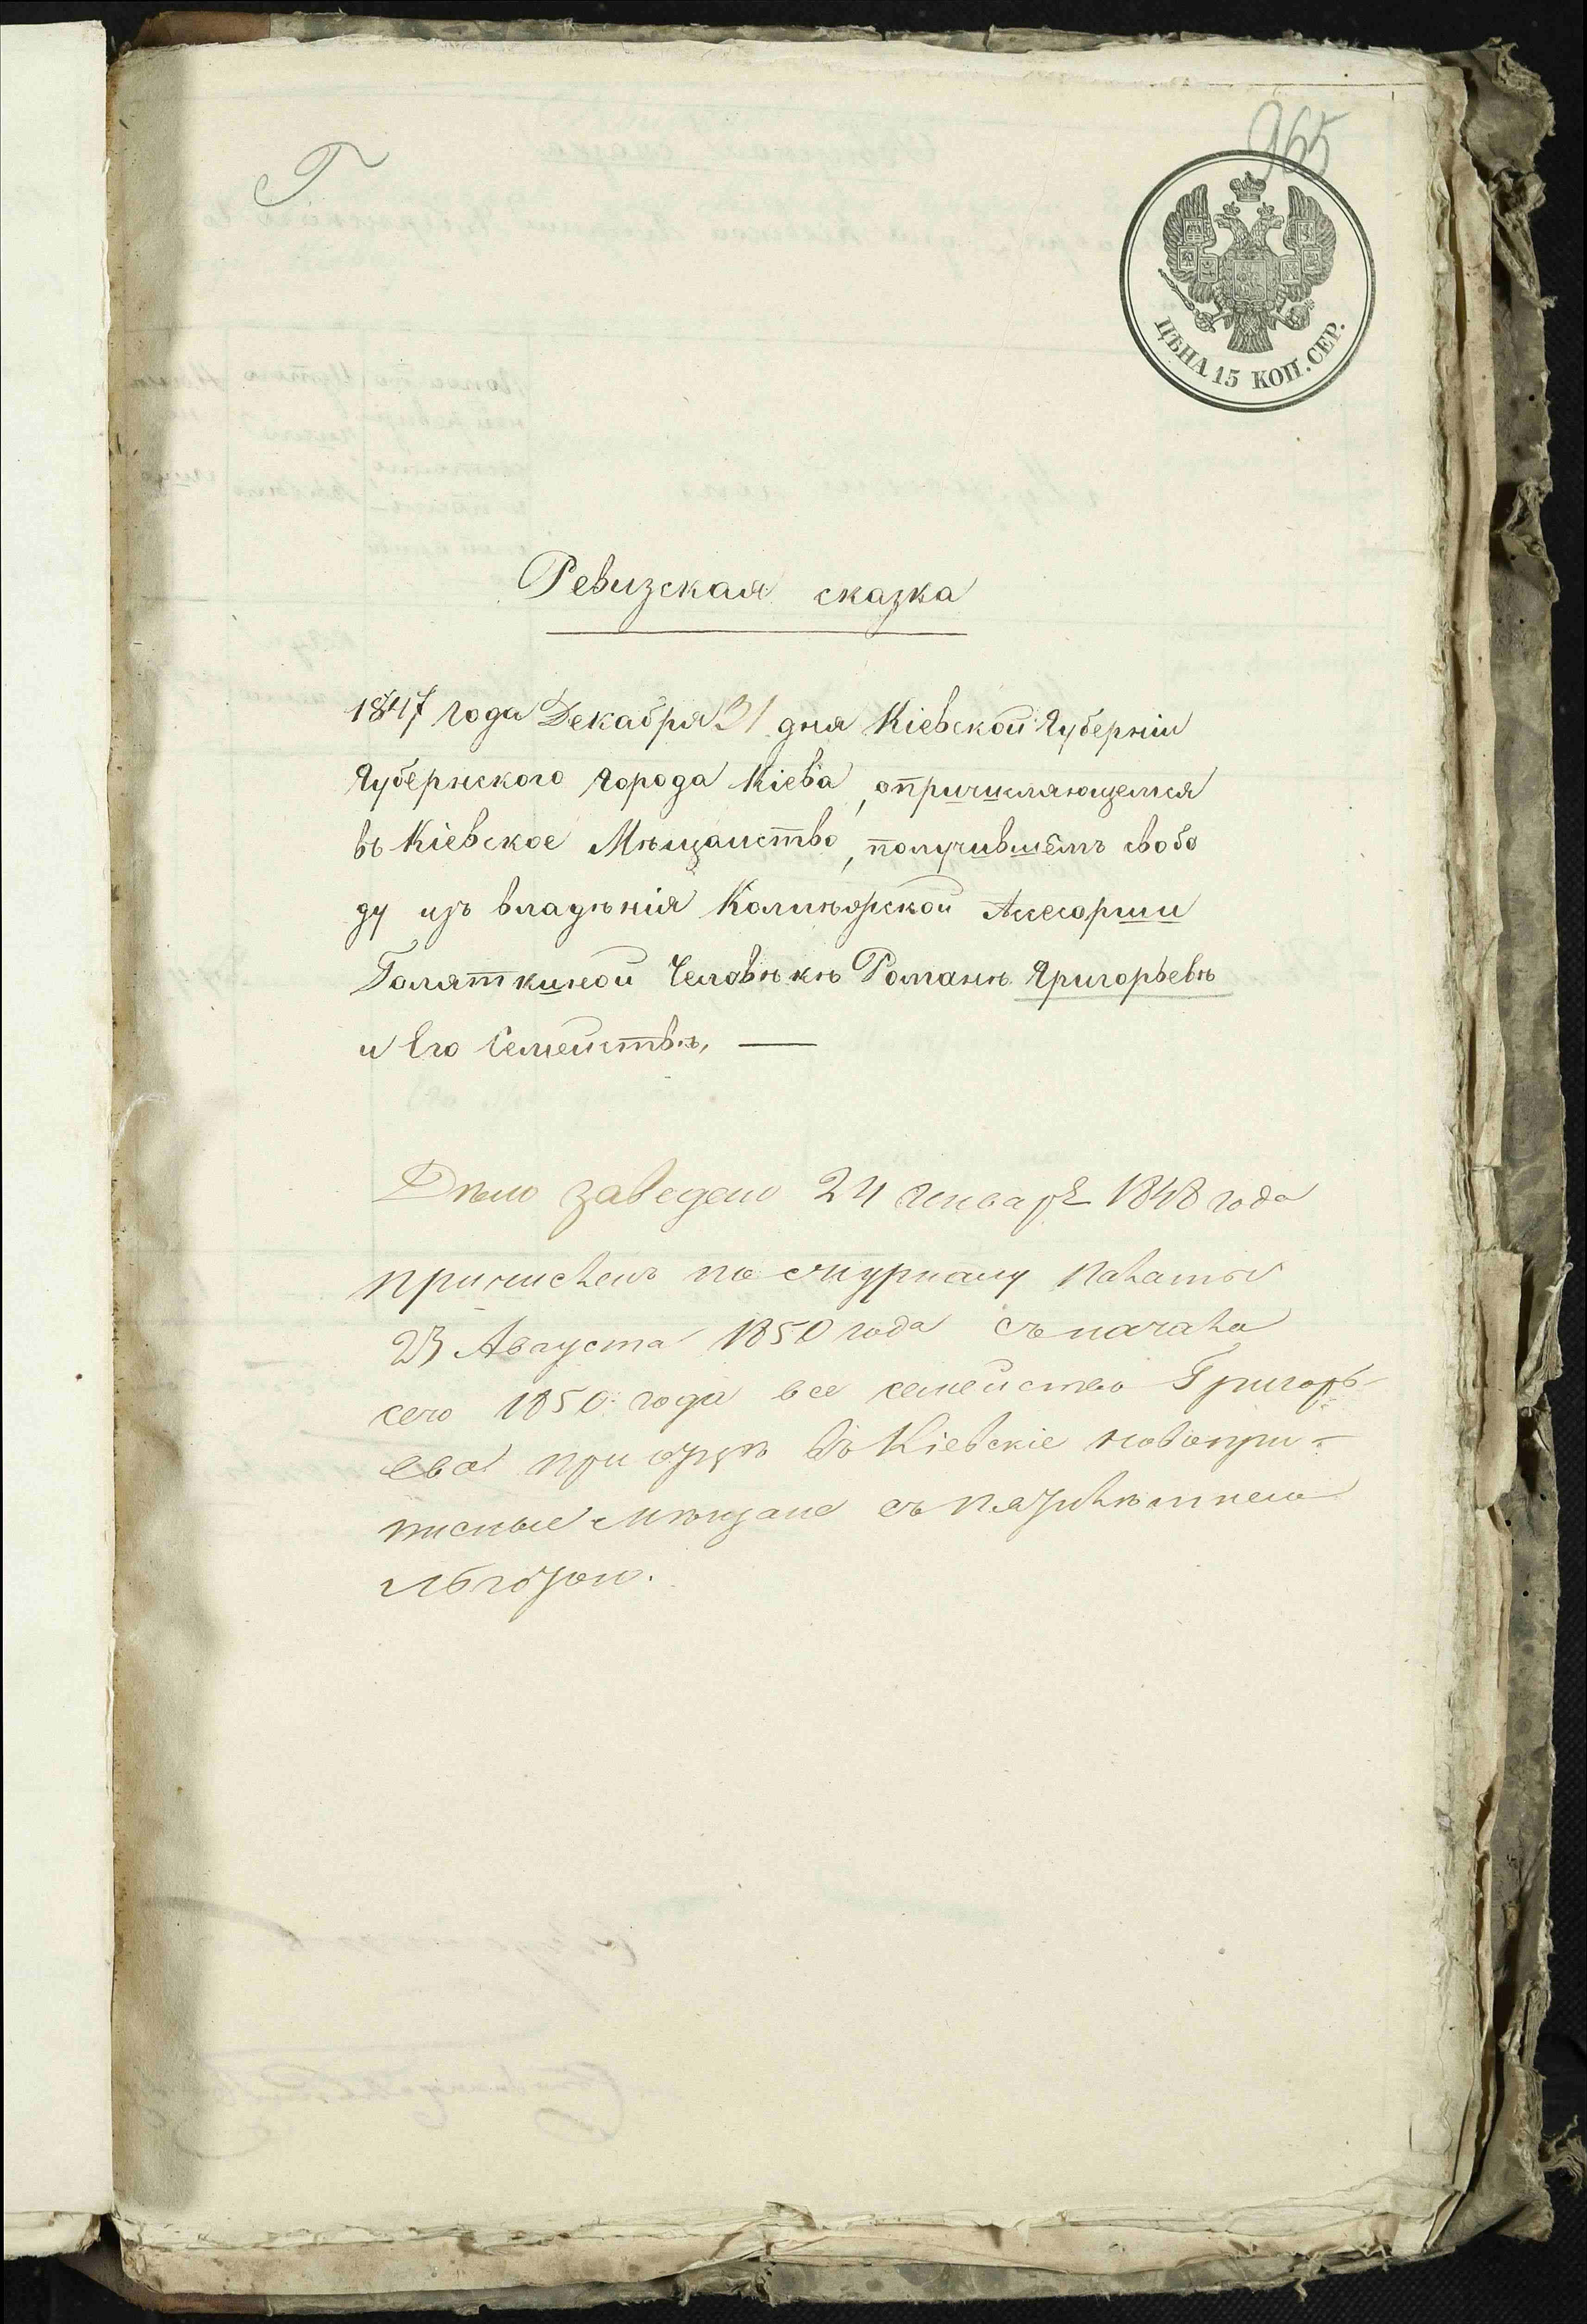 Г
965
ЦѢНА 15 КОП. СЕР.
Ревизская сказка
1847 года Декабря 31 дня Кіевской Губерніи
Губернского города Кіева, о причисляющемся
въ Кіевское Мѣщанство, получившемъ свобо
ду изъ владѣнія Колижской Асесорши
Голяткиной Человѣкѣ Романѣ Григорьевѣ
и Его Семействѣ, —
Дѣло заведено 24 Генваря 1848 года
причисленъ по журналу Палаты
23 Августа 1850 года съ начала
сего 1850 года все семейство Григорь-
ева въ Кіевскіе новопри-
писные мѣщане съ пятилѣтнею
льготою.